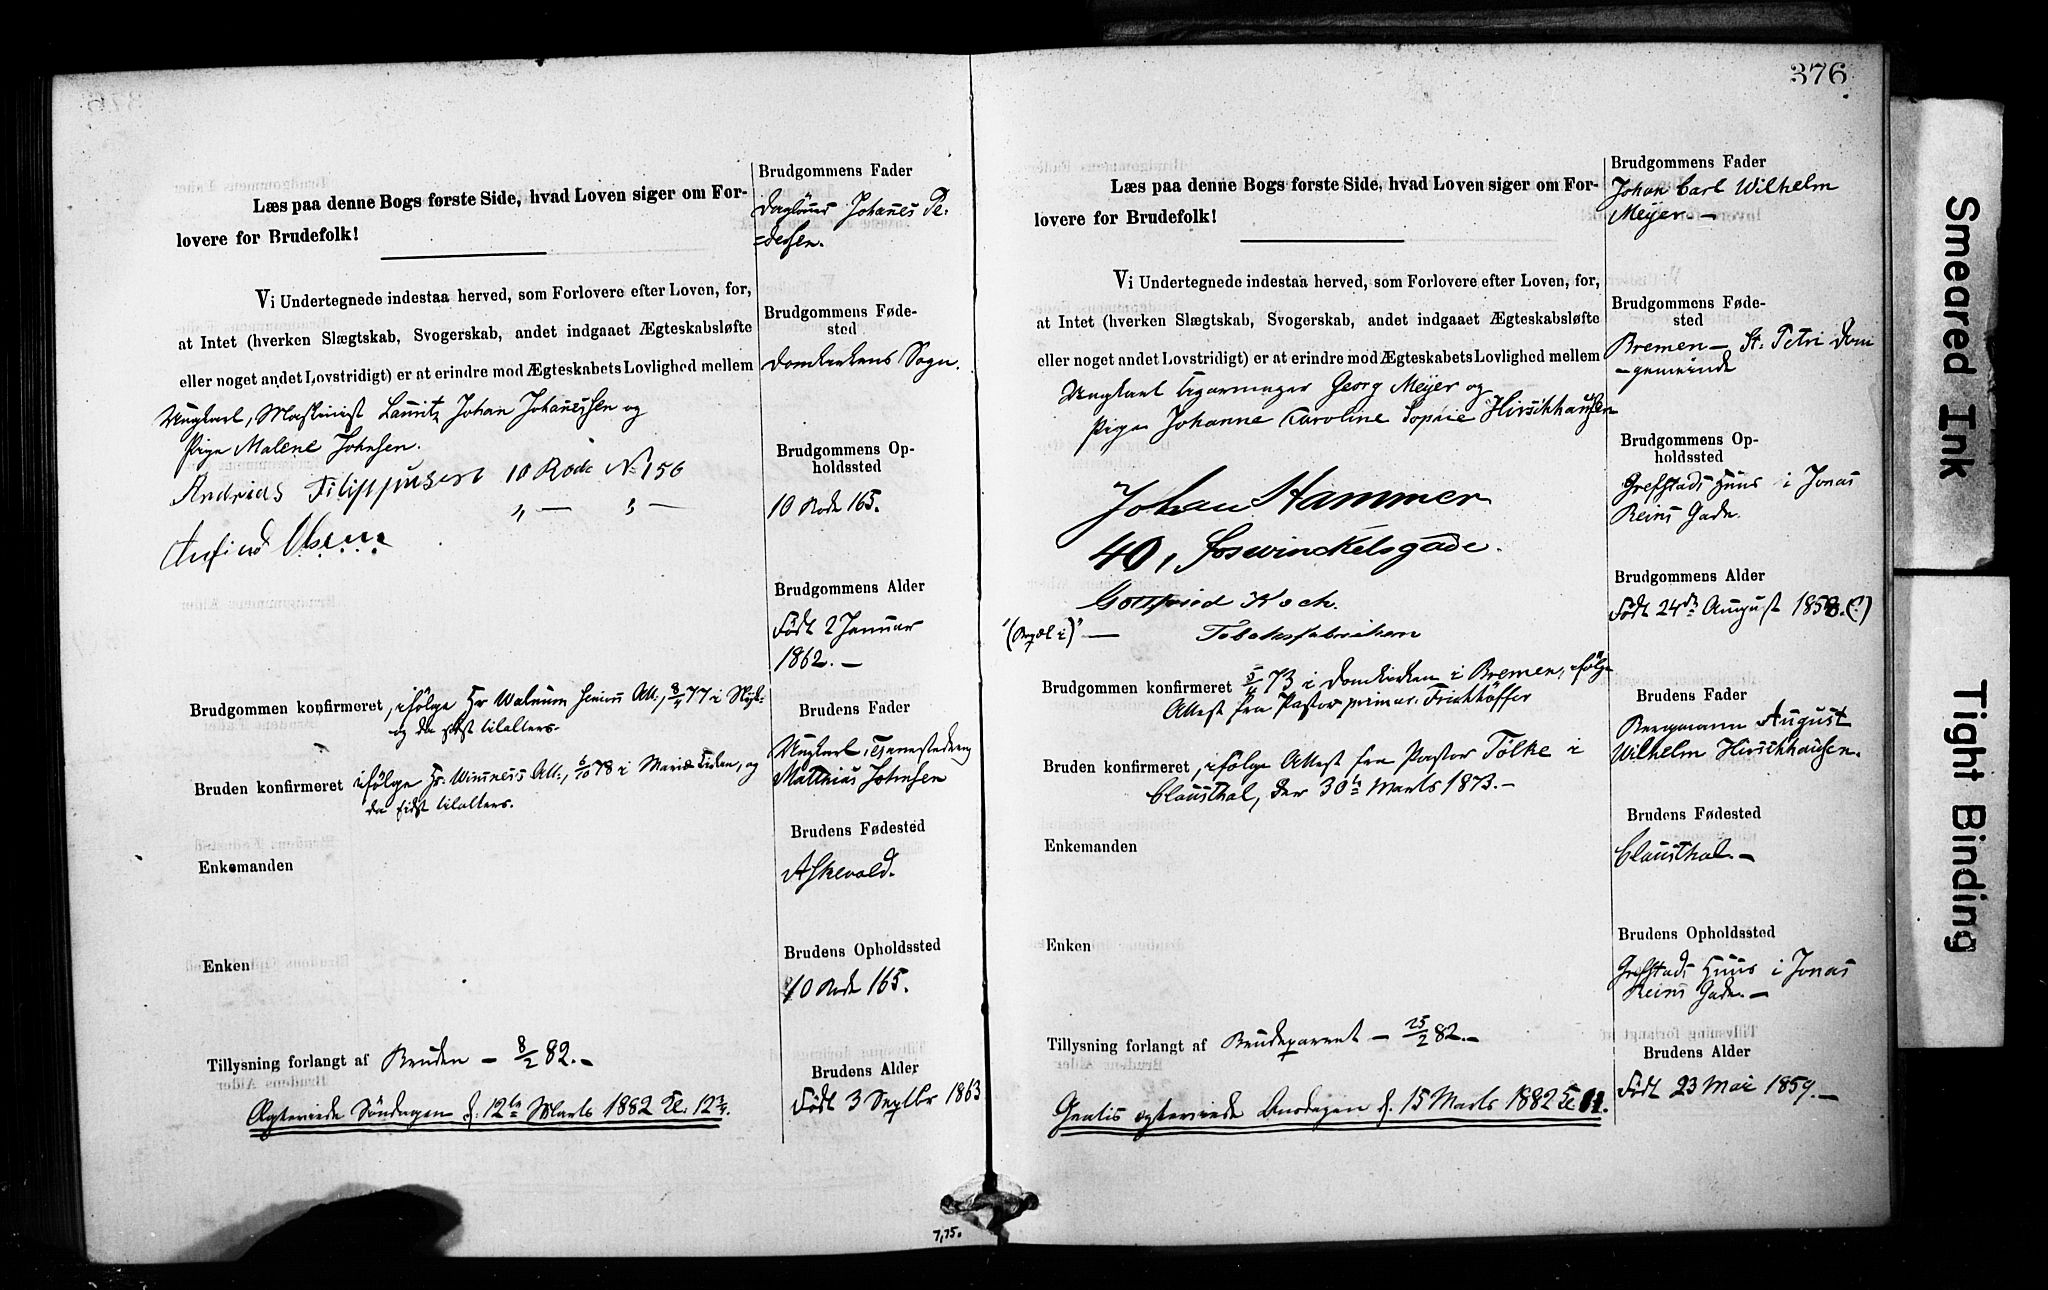 Læs paa denne Bogs første Side, hvad Loven siger om For-
lovere for Brudefolk!
Vi Undertegnede indestaa herved, som Forlovere efter Loven, for,
at Intet (hverken Slægtskab, Svogerskab, andet indgaaet Ægteskabsløfte
eller noget andet Lovstridigt) er at erindre mod Ægteskabets Lovlighed mellem
Ungkarl, Maskinist Lauritz Johan Johanessen og
Pige Malene Johnsen.
Andrias Filippusen 10 Rode No 156
" — " —
Olsen
Brudgommen konfirmeret, ifølge Hr Walnum Attt., 8/4 77 i
og da sidst tilalters.
Bruden konfirmeret ifølge Hr. Wiesness Att., 6/10 78 i Mariæ Kirken, og
da sidst tilalters.
Enkemanden
Enken
Tillysning forlangt af Bruden — 8/2 82. —
Ægteviede Søndagen d. 12te Marts 1882 Kl. 12 3/4.
Brudgommens Fader
Johanes Pe-
=dersen.
Brudgommens Føde-
sted
Domkirkens Sogn.
Brudgommens Op-
holdssted
10 Rode 165.
Brudgommens Alder
Født 2 Januar
1862. —
Brudens Fader
Ungkarl, Tjenestedreng
Matthias Johnsen
Brudens Fødested
Askevold.
Brudens Opholdssted
10 Rode 165.
Brudens Alder
Født 3 Septbr 1863
7,75.
376
Læs paa denne Bogs første Side, hvad Loven siger om For-
lovere for Brudefolk!
Vi Undertegnede indestaa herved, som Forlovere efter Loven, for,
at Intet (hverken Slægtskab, Svogerskab, andet indgaaet Ægteskabsløfte
eller noget andet Lovstridigt) er at erindre mod Ægteskabets Lovlighed mellem
Ungkarl Cigarmager Georg Meyer og
Pige Johanne Caroline Sophie Hirschhausen
Johan Hammer
40, Foswinckelsgade.
Gottfried Koch.
Tobaksfabriken
Brudgommen konfirmeret 5/4 73 i Domkirken i Bremen, ifølge
Attest fra Pastor primar. Frickhöffer
Bruden konfirmeret, ifølge Attest fra Pastor Tölke i
Clausthal, den 30te Marts 1873. —
Enkemanden
Enken
Tillysning forlangt af Brudeparret — 25/2 82. —
Gratis ægteviede Onsdagen d. 15 Marts 1882 Kl 11.
Brudgommens Fader
Johan Carl Wilhelm
Meyer. —
Brudgommens Føde-
sted
Bremen — St. Petri Dom
-gemeinde
Brudgommens Op-
holdssted
Grefstads Huus i Jonas
Reins Gade.
Brudgommens Alder
Født 24de August 1858. (!)
Brudens Fader
Bergmann August
Wilhelm Hirschhausen.
Brudens Fødested
Clausthal. —
Brudens Opholdssted
Grefstads Huus i Jonas
Reins Gade. —
Brudens Alder
Født 23 Mai 1859. —
Smeared Ink
Tight Binding